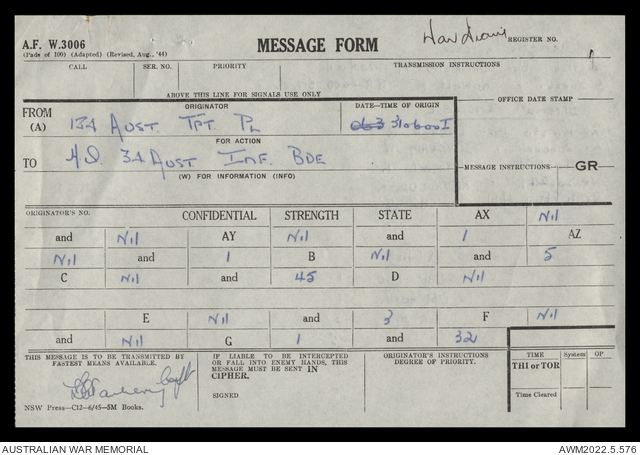 A.F. W.3006
(Pads of 100) (Adapted) (Revised, Aug., '44)
MESSAGE FORM
REGISTER NO.
CALL SER. NO. PRIORITY TRANSMISSION INSTRUCTIONS
ABOVE THIS LINE FOR SIGNALS USE ONLY
FROM (A) ORIGINATOR DATE—TIME OF ORIGIN OFFICE DATE STAMP
134 AUST. TPT. PL 310600I
FOR ACTION
TO H.Q. 34 AUST INF. BDE
MESSAGE INSTRUCTIONS GR
(W) FOR INFORMATION (INFO)
ORIGINATOR'S NO. CONFIDENTIAL STRENGTH STATE AX Nil
and Nil AY Nil and 1 AZ
Nil and 1 B Nil and 5
C Nil and 45 D Nil
E Nil and 3 F Nil
and Nil G 1 and 32
THIS MESSAGE IS TO BE TRANSMITTED BY FASTEST MEANS AVAILABLE.
IF LIABLE TO BE INTERCEPTED OR FALL INTO ENEMY HANDS, THIS MESSAGE MUST BE SENT IN CIPHER.
SIGNED
ORIGINATOR'S INSTRUCTIONS DEGREE OF PRIORITY.
TIME System OP
THI or TOR
Time Cleared
Capt
NSW Press—C12—6/45—5M Books.
AUSTRALIAN WAR MEMORIAL AWM2022.5.576